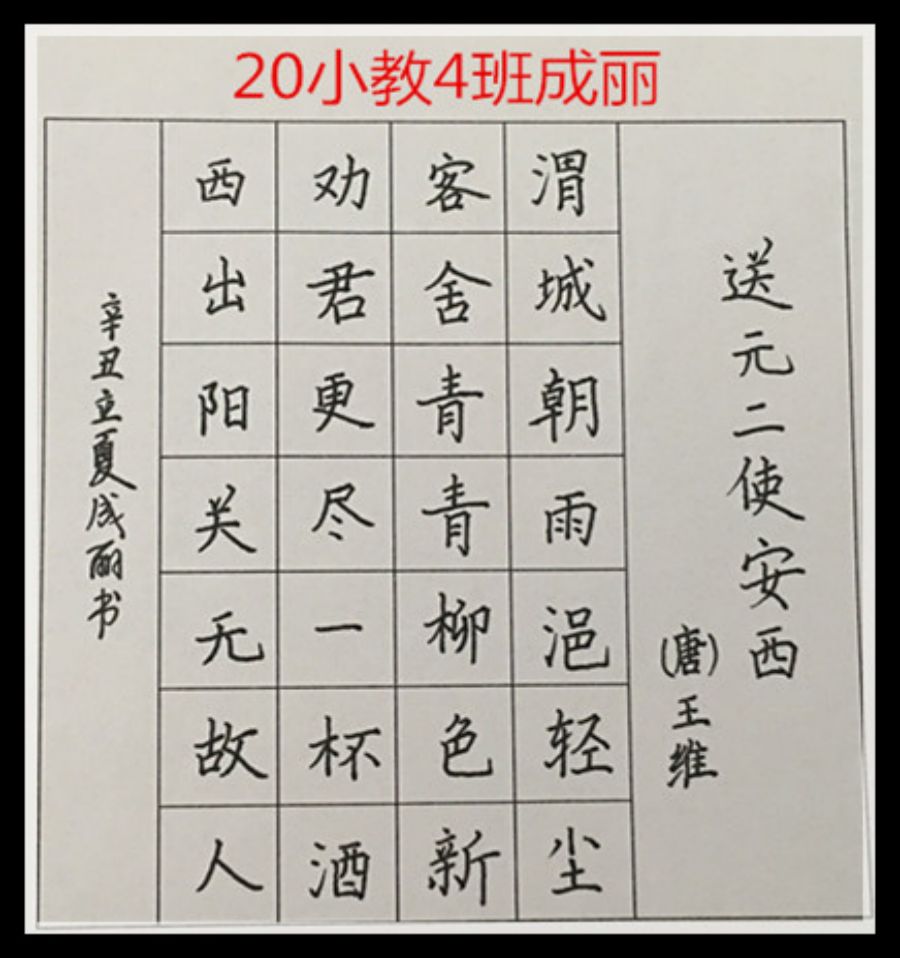 20小教4班成丽
送元二使安西
(唐)王维
渭城朝雨浥轻尘
客舍青青柳色新
劝君更尽一杯酒
西出阳关无故人
辛丑立夏成丽书